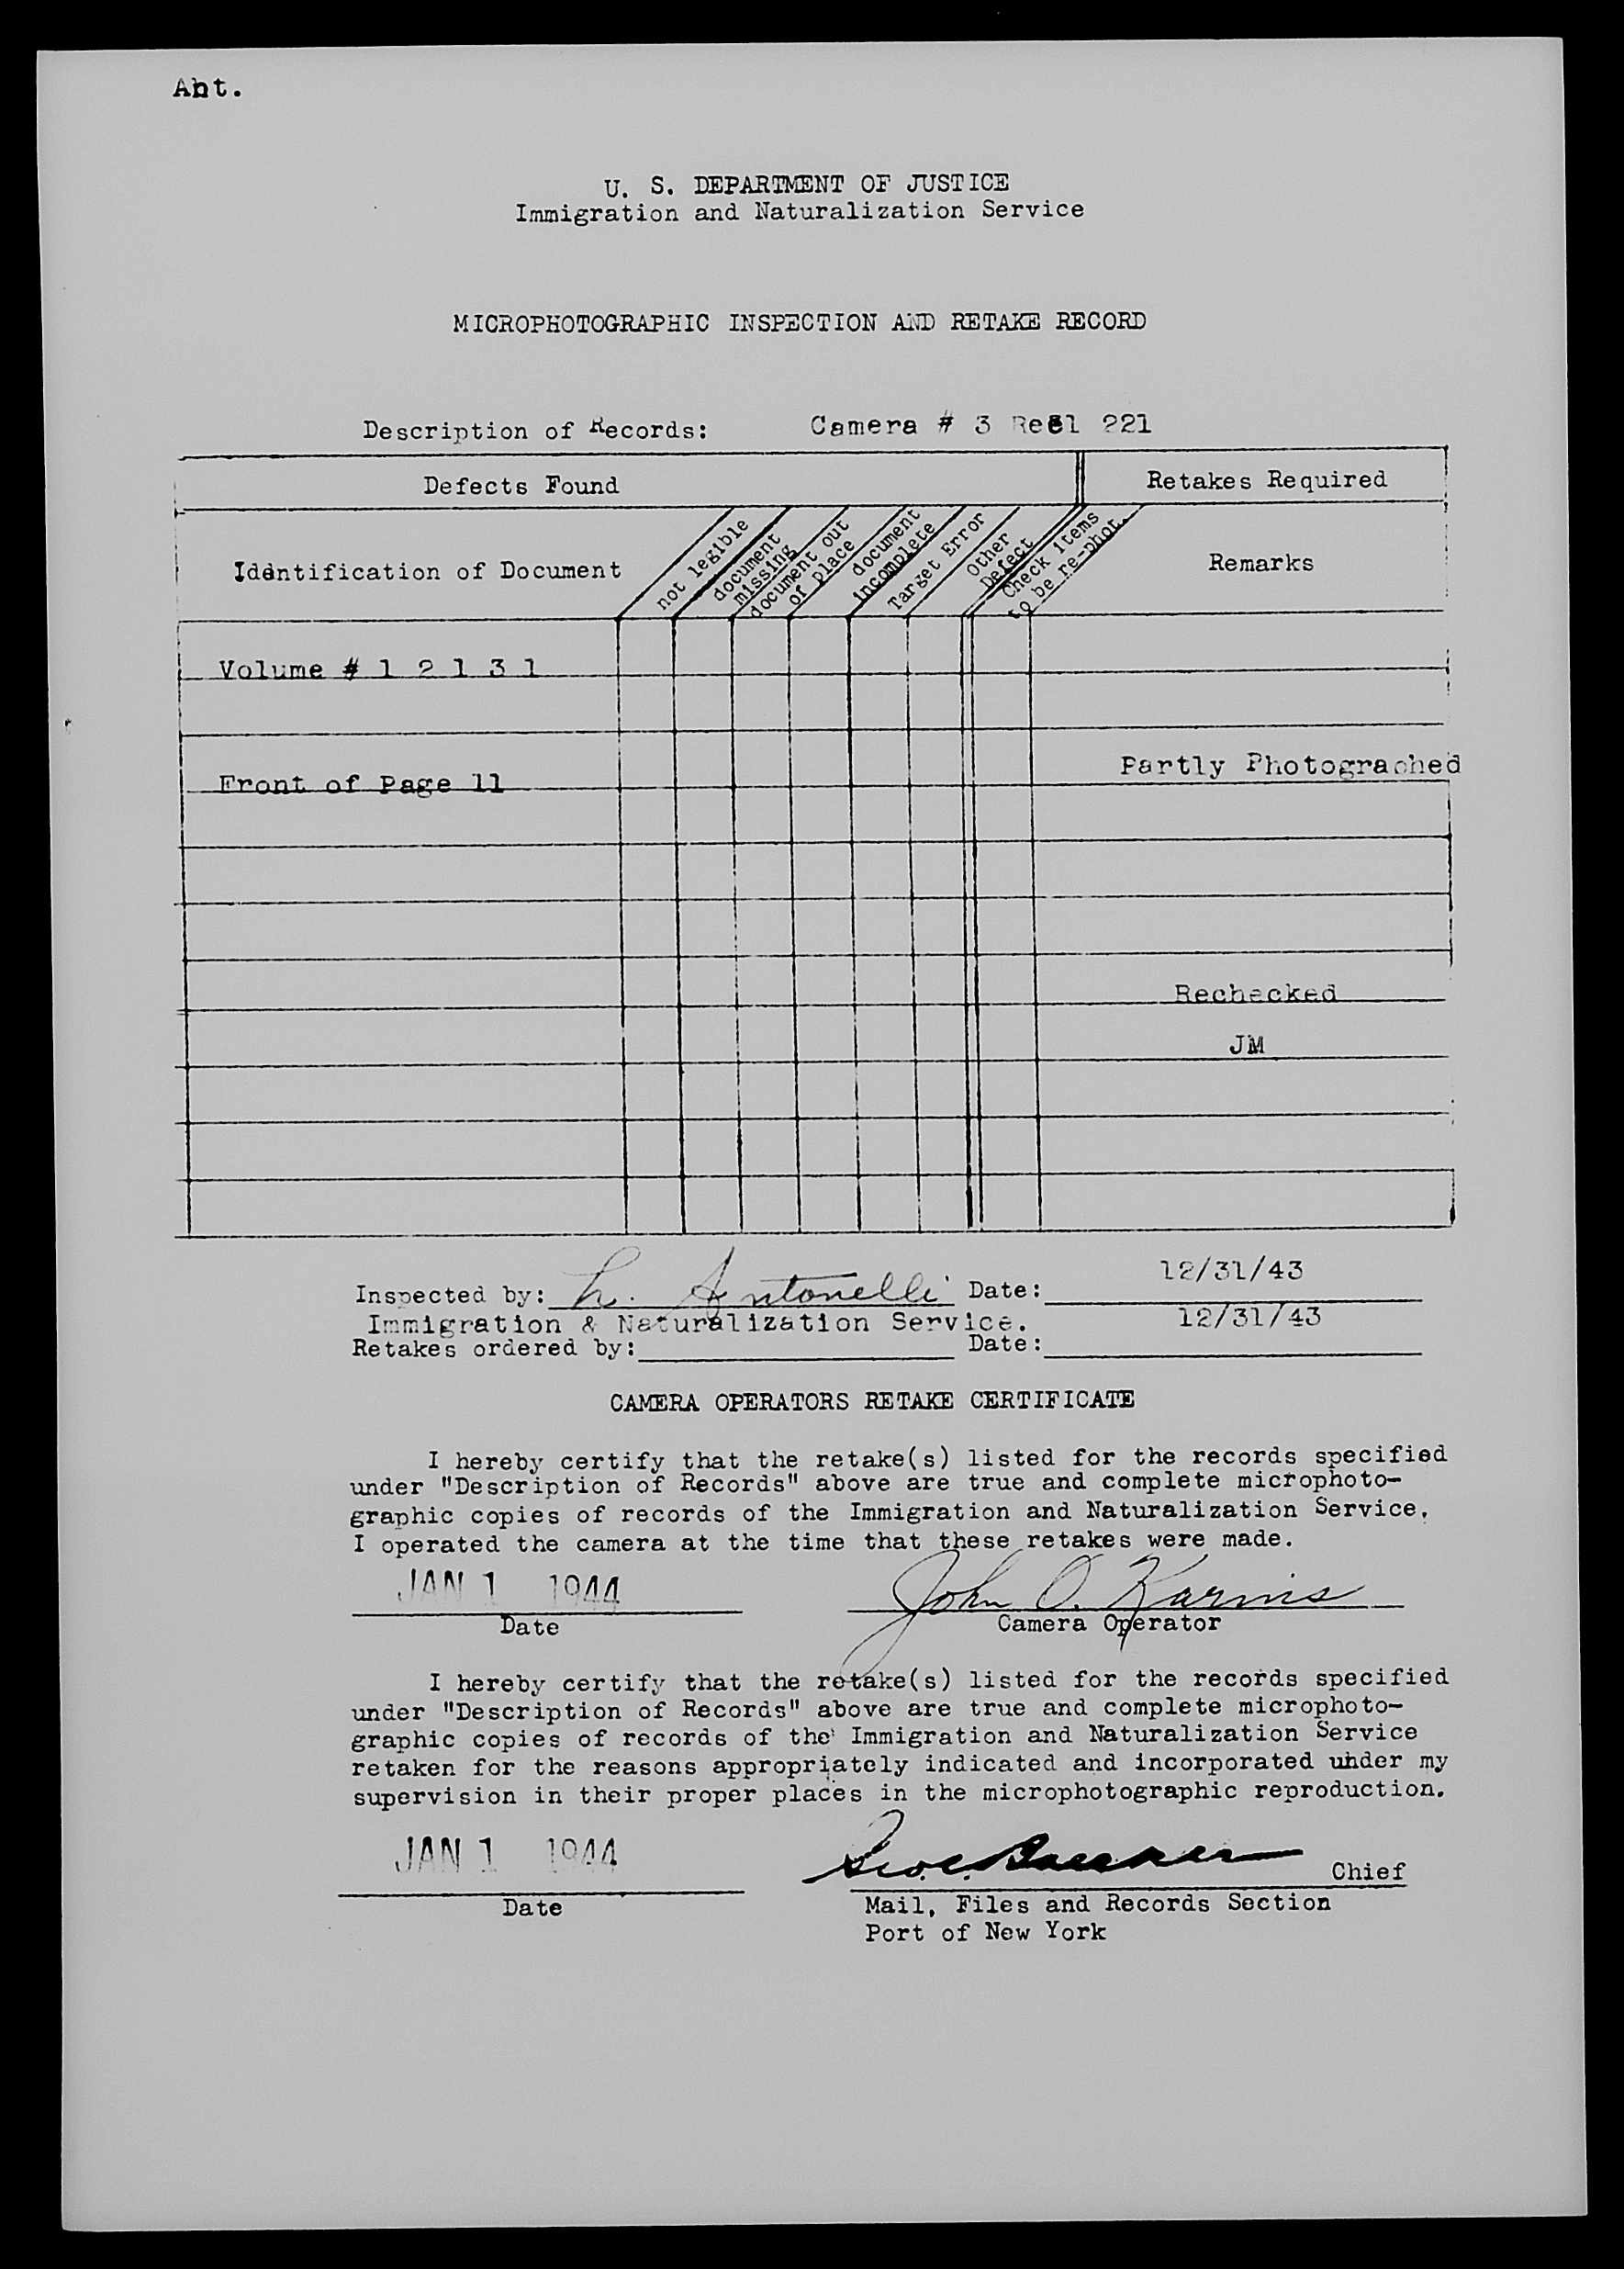 Ant.
U. S. DEPARTMENT OF JUSTICE
Immigration and Naturalization Service
MICROPHOTOGRAPHIC INSPECTION AND RETAKE RECORD
Description of Records: Camera # 3 Reel 221
Defects Found Retakes Required
Identification of Document
not legible
document missing
document out of place
document incomplete
Target Error
Other Defect
Check items to be re-phot.
Remarks
Volume # 1 2 1 3 1
Front of Page 11 Partly Photograched
Rechecked
JM
Inspected by: L. Antonelli Date: 12/31/43
Immigration & Naturalization Service. 12/31/43
Retakes ordered by: Date:
CAMERA OPERATORS RETAKE CERTIFICATE
I hereby certify that the retake(s) listed for the records specified
under "Description of Records" above are true and complete microphoto-
graphic copies of records of the Immigration and Naturalization Service.
I operated the camera at the time that these retakes were made.
JAN 1 1944 John O. Karins
Date Camera Operator
I hereby certify that the retake(s) listed for the records specified
under "Description of Records" above are true and complete microphoto-
graphic copies of records of the Immigration and Naturalization Service
retaken for the reasons appropriately indicated and incorporated under my
supervision in their proper places in the microphotographic reproduction.
JAN 1 1944 Chief
Date Mail, Files and Records Section
Port of New York